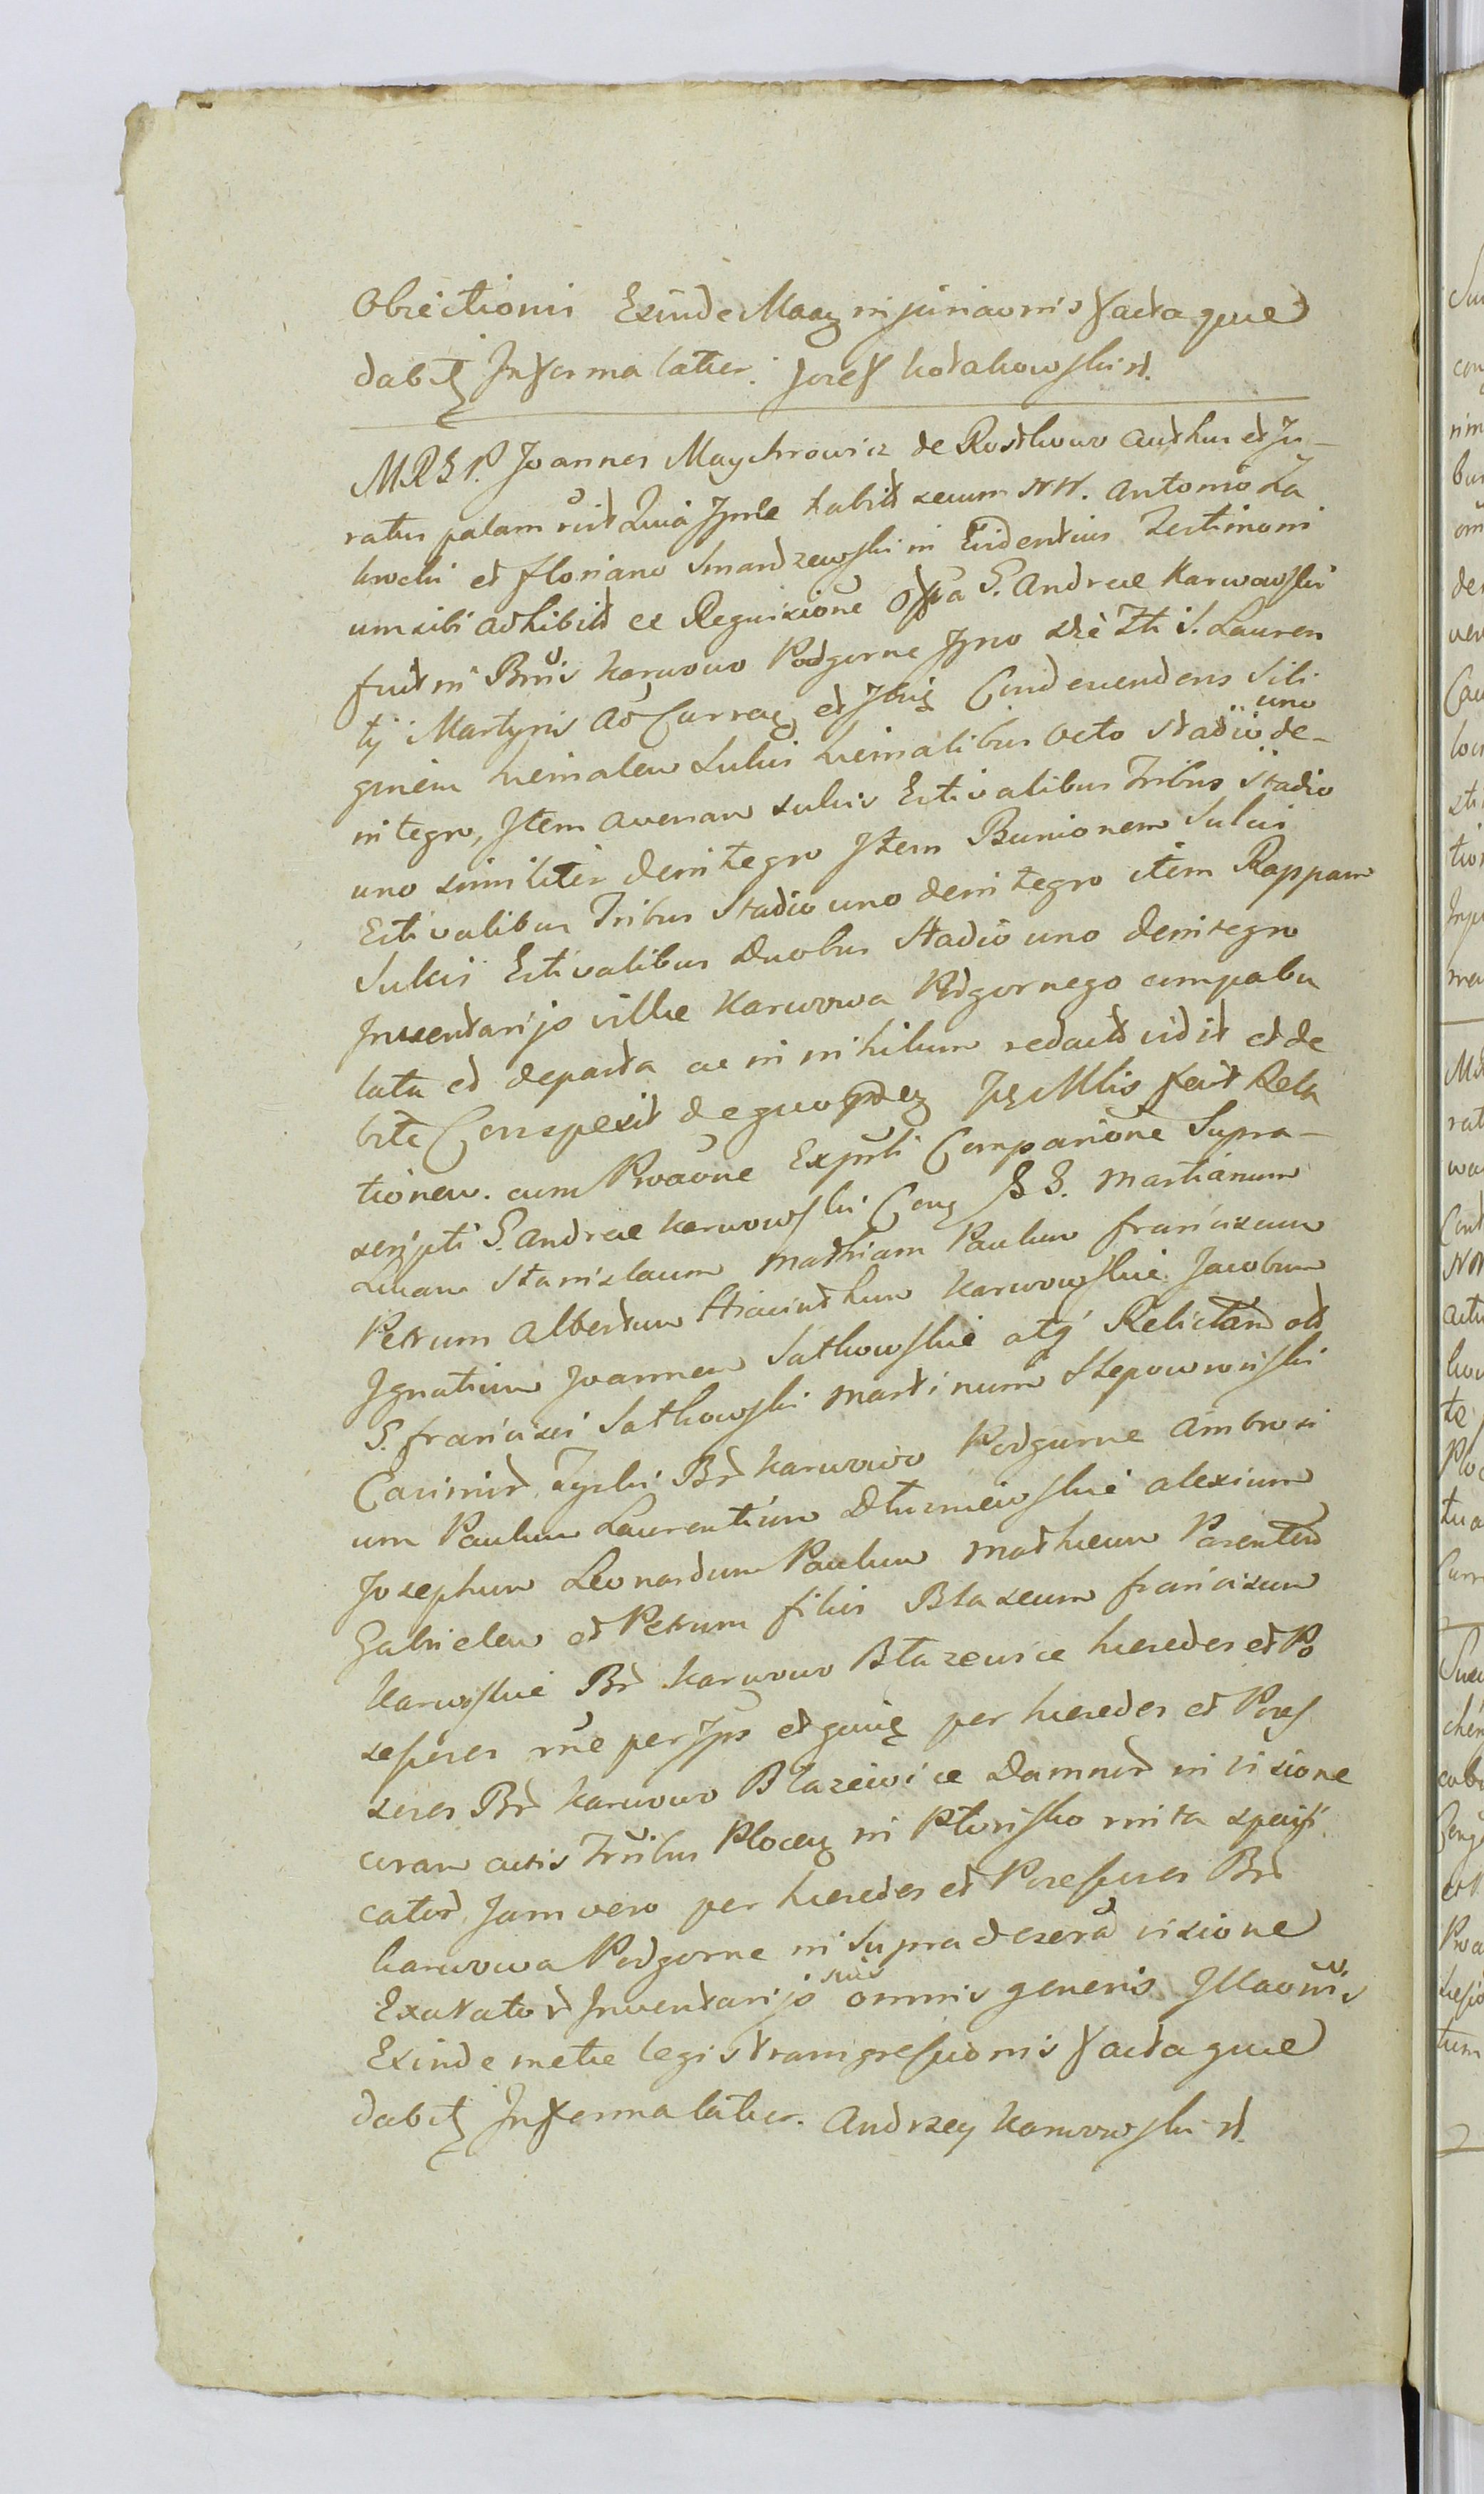 Obiectionis Exinde Maaz injuriaonis facta que
dabit Informa latior. Jozef Kołakowski st.
M.R.S.P. Joannes Maychrowicz de Rostkowo authus et Ju-
ratus palam rcit Quia Ipse habitt secum NN. Antonio Za
krocki et Floriano Smardzewski in Evidentius Testimoni
um sibi adhibitt ex Requisicione G. Andreae Karwowski
fuit in Bnis Karwowo Podgorne Ipso die Sti S. Lauren
tij Martyris ad et Ibiq Condescendens Sili
uno
ginem hiemalem Sulcis hiemalibus octo stadio de-
integro, Item avenam sulcis Estivalibus Tribus stadio
uno similiter deintegro Item Bunionem Sulcis
Estivalibus Tribus Stadio uno deintegro item Rappam
Sulcis Estivalibus Duobus Stadio uno deintegro
Inventarijs villae Karwowa Podgornego compabu
lata et depasta ac in nihilum redactt vidit et de
bite Conspexit de quo Mlis fecit Rela
tionem. cum Proaone Exprti Comparione Supra-
scripti G. Andreae Karwowski Cong GG. Martianum
Lucam Stanislaum Mathiam Paulum Franciscum
Petrum Albertum Hiacinthum Karwowskie Jacobum
Ignatium Joannem Satkowskie atq Relictam olt
G. Francisci Satkowski Martinum Szepowoiski
Casimir Zyski Br Karwowo Podgurne Ambrosi
um Paulum Laurentium Dłuzniewskie Alexium
Josephum Leonardum Paulum Matheum Parentem
Gabrielem et Petrum filios Blaseum Franciscum
Karwskie Br Karwowo Błazewice heredes et Po
sessores rne per Ips et quiq per heredes et Poses
sores Br Karwowo Błazewice Damnor in visione
coram actis Trribus Plocen in Płonsko rnita specifi
cator Jam vero per heredes et Posessores Br
Karwowa Podgorne in Supra dcxera visione
suis
Exarator Inventarijs omnis generis Illaonis
Exinde metae legis transgressionis facta que
dabit Informa latior. Andrzey Karwowski st.